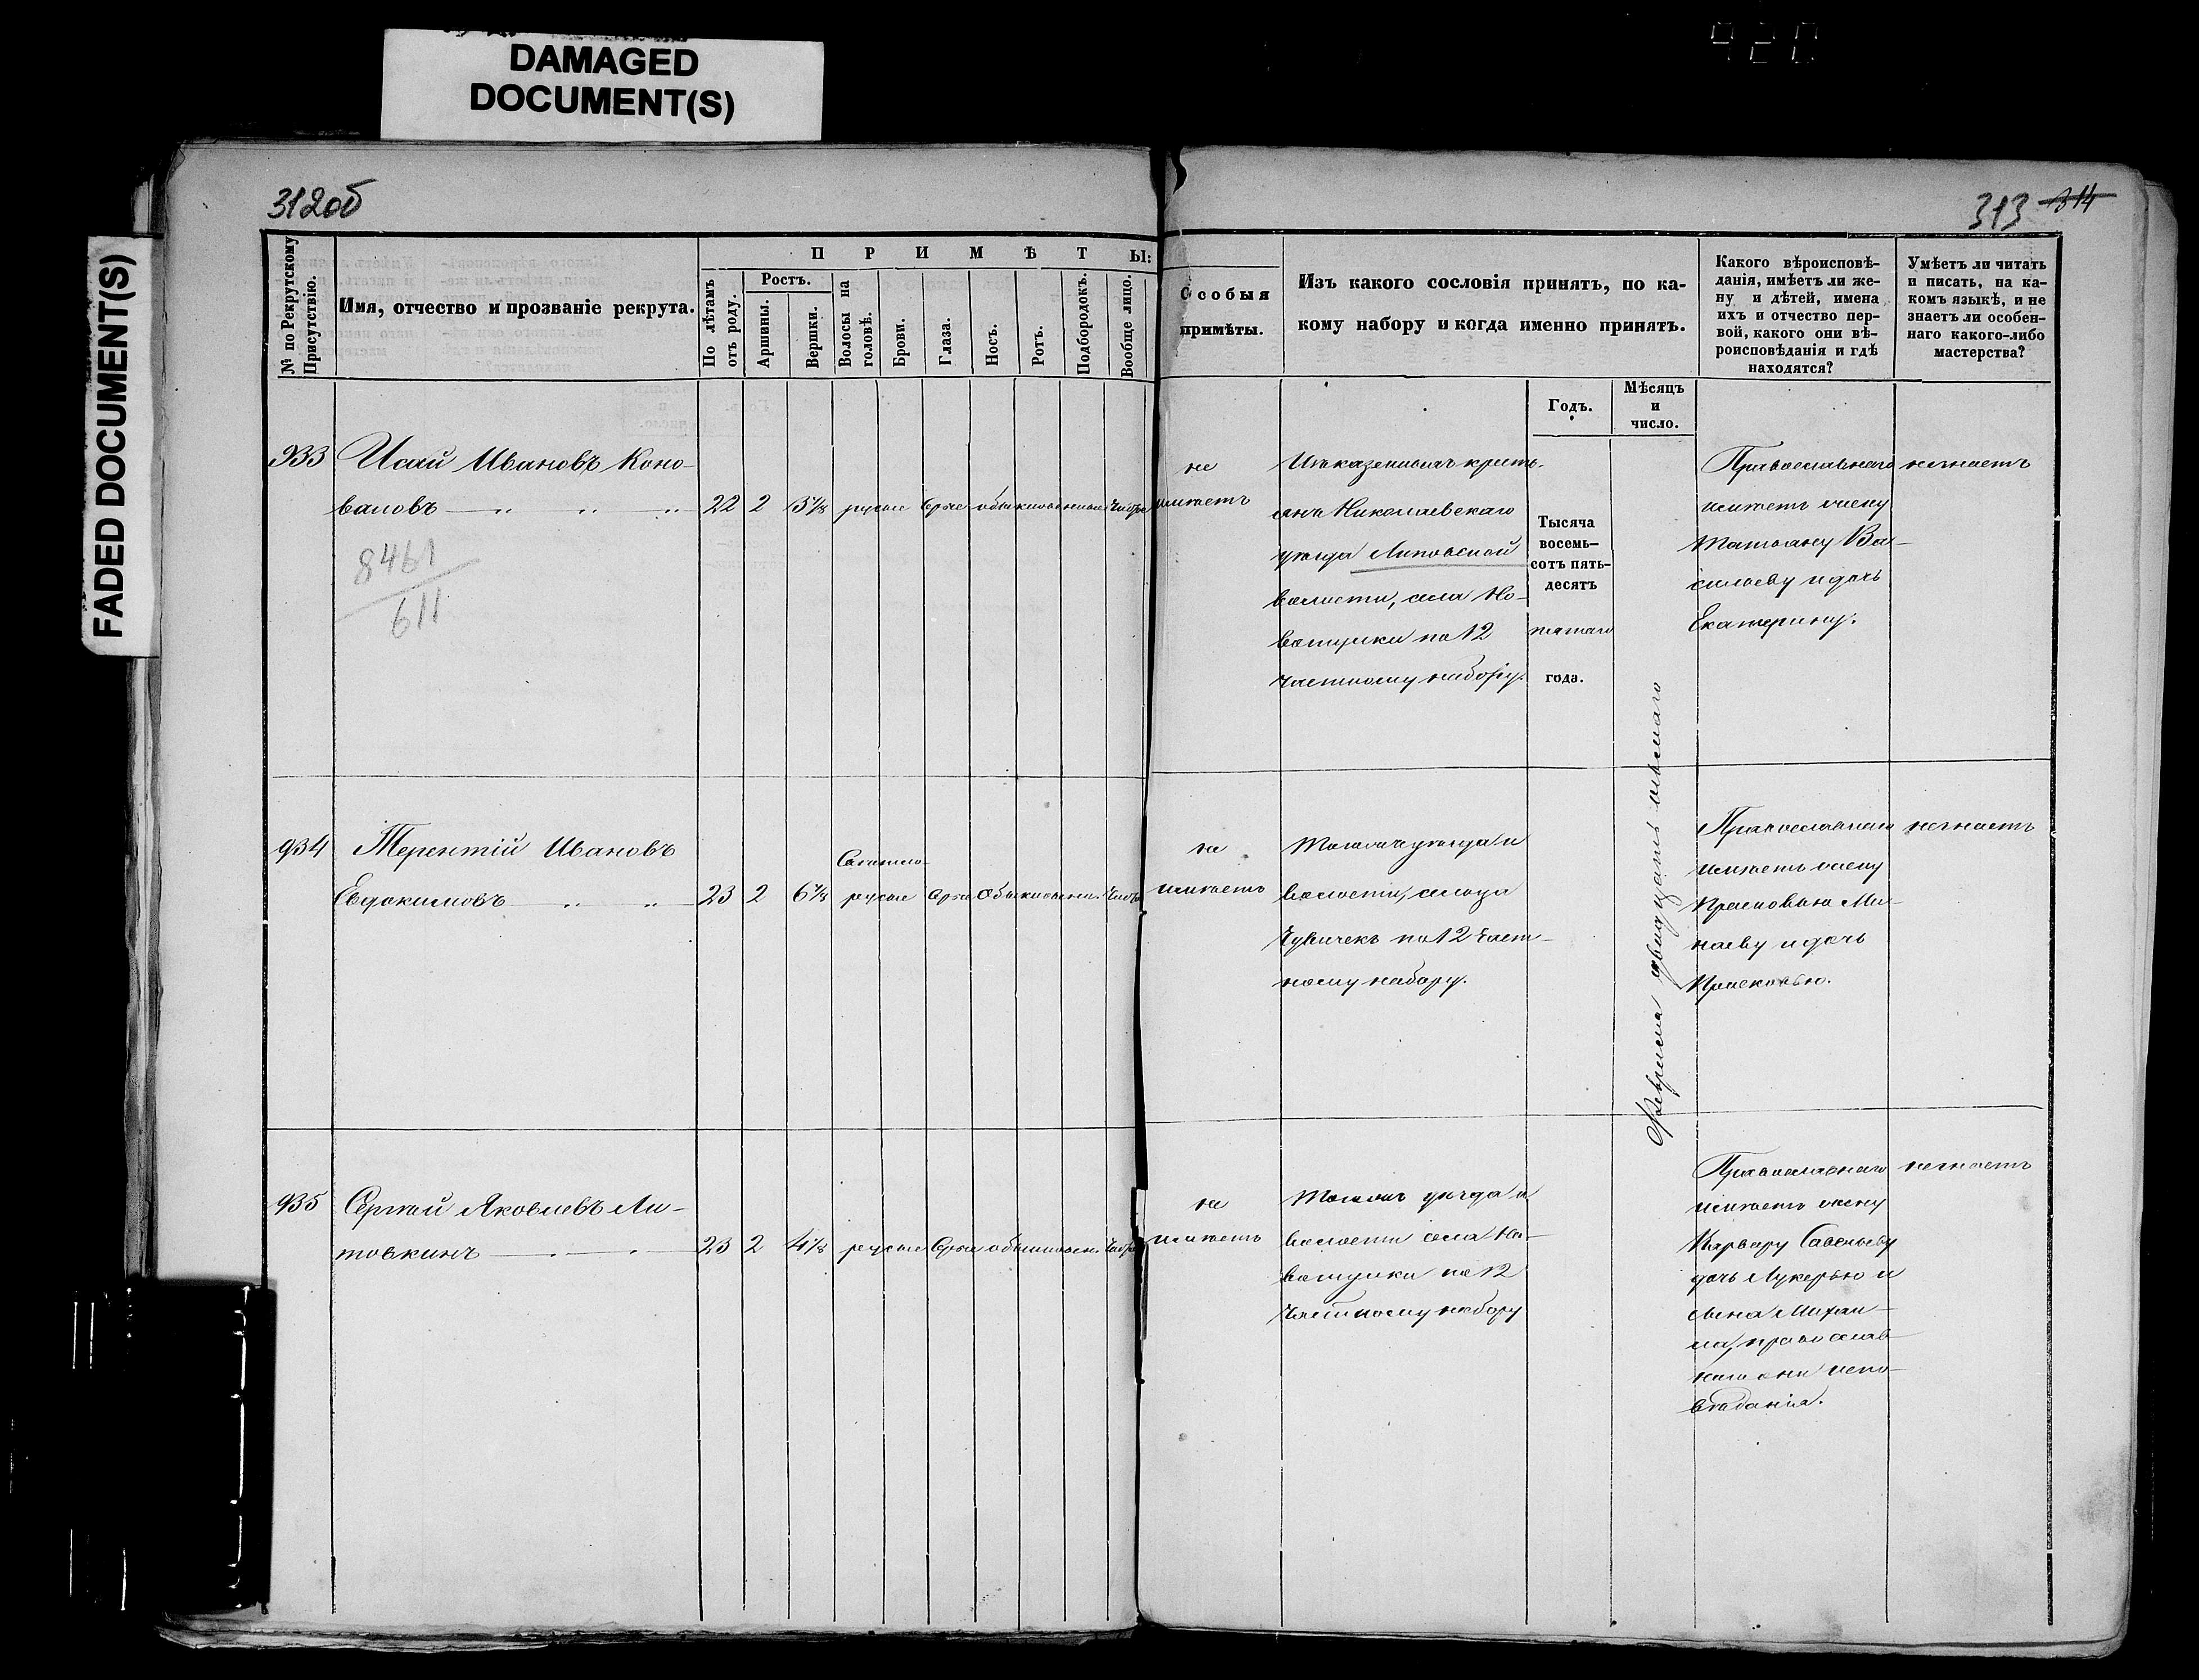 DAMAGED
DOCUMENT(S)
FADED DOCUMENT(S)
420
312об
313 314
№ по Рекрутскому
Присутствію.
Имя, отчество и прозваніе рекрута.
П Р И М Ѣ Т Ы:
По лѣтамъ
отъ роду.
Ростъ.
Аршины.
Вершки.
Волосы на
головѣ.
Брови.
Глаза.
Носъ.
Ротъ.
Подбородокъ.
Вообще лицо.
Особыя
примѣты.
Изъ какого сословія принятъ, по ка-
кому набору и когда именно принятъ.
Годъ.
Мѣсяцъ
и
число.
Какого вѣроисповѣ-
данія, имѣетъ ли же-
ну и дѣтей, имена
ихъ и отчество пер-
вой, какого они вѣ-
роисповѣданія и гдѣ
находятся?
Умѣетъ ли читать
и писать, на ка-
комъ языкѣ, и не
знаетъ ли особен-
наго какого-либо
мастерства?
933 Исай Ивановъ Коно-
валовъ 22 2 3 1/8 русые сѣрые обыкновенные чистое
8461
611
не
имѣетъ
Изъ казенныхъ кресть-
янъ Николаевскаго
уѣзда Липовской
волости, села Но-
вотулки по 12
частному набору.
Тысяча
восемь-
сотъ пять-
десятъ
пятаго
года.
Февраля двадцать осьмаго
Православнаго
имѣетъ жену
Татьяну Ва-
сильеву и дочь
Екатерину.
незнаетъ
934 Терентій Ивановъ
Евдокимовъ 23 2 6 1/8 русые сѣрые обыкновен. чисто
не
имѣетъ
Тогожъ уѣзда и
волости, сельца
по 12 част-
ному набору.
Православнаго
имѣетъ жену
Прасковью Ми-
наеву и дочь
Прасковью.
незнаетъ
935 Сергѣй Яковлевъ Ли-
товкинъ 23 2 4 1/8 русые сѣрые обыкновен. чистое
не
имѣетъ
Тогожъ уѣзда и
волости села Но-
вотулки по 12
частному набору
Православнаго
имѣетъ жену
Варвару Савельеву
дочь Лукерью и
сына Михаи-
ла, православ-
наго они испо-
вѣданія.
незнаетъ